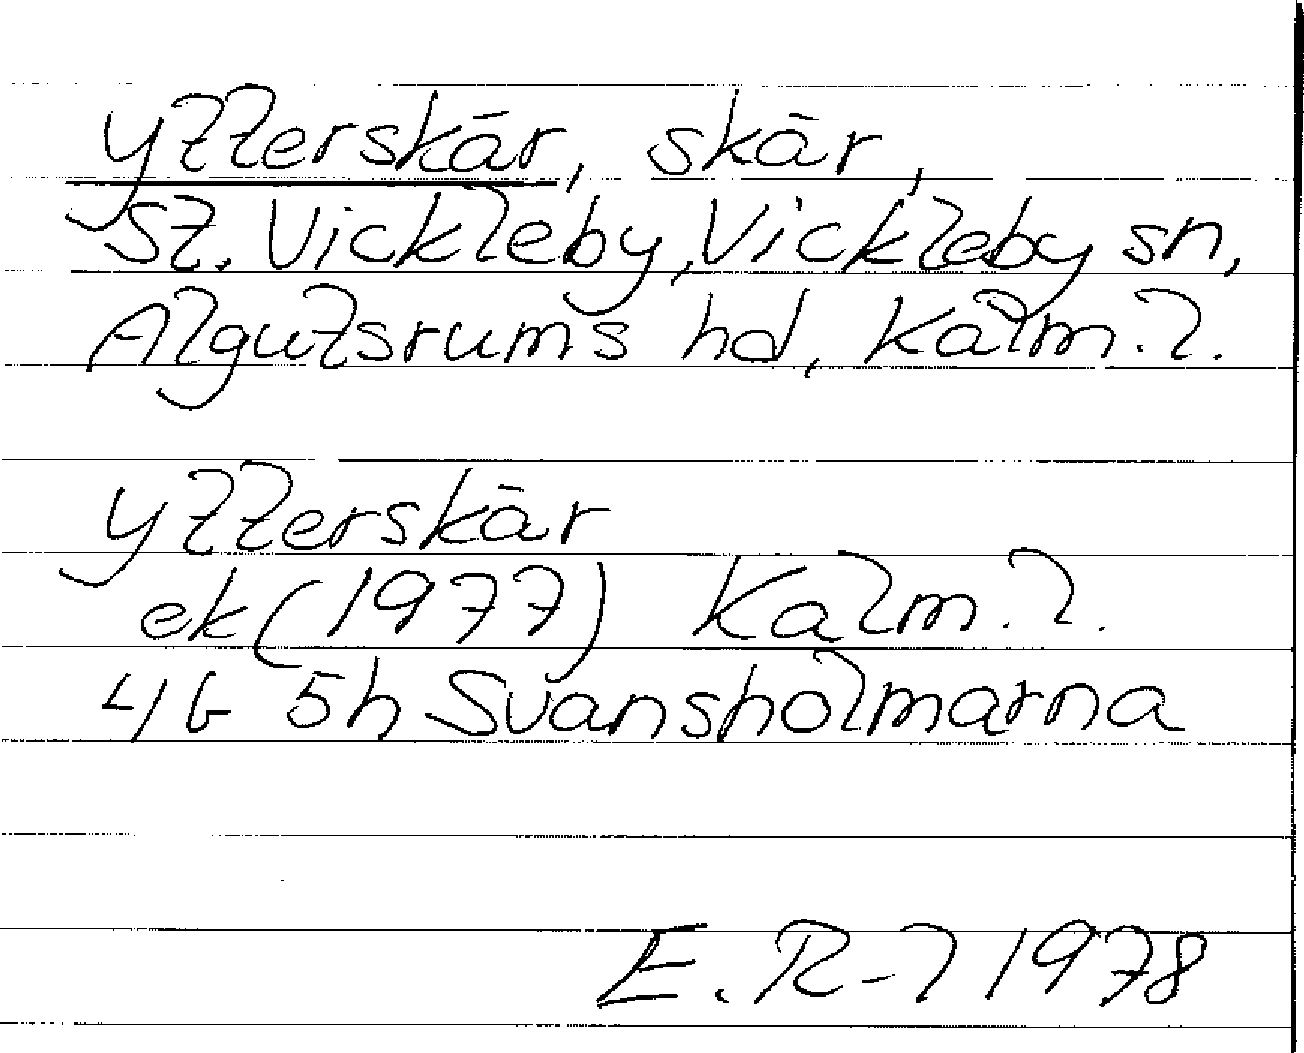 Ytterskär, skär,
St. Vickleby, Vickleby sn,
Algutsrums hd, Kalm. l.
Ytterskär
ek (1977) Kalm. l.
4G 5h Svansholmarna
E. R-l 1978